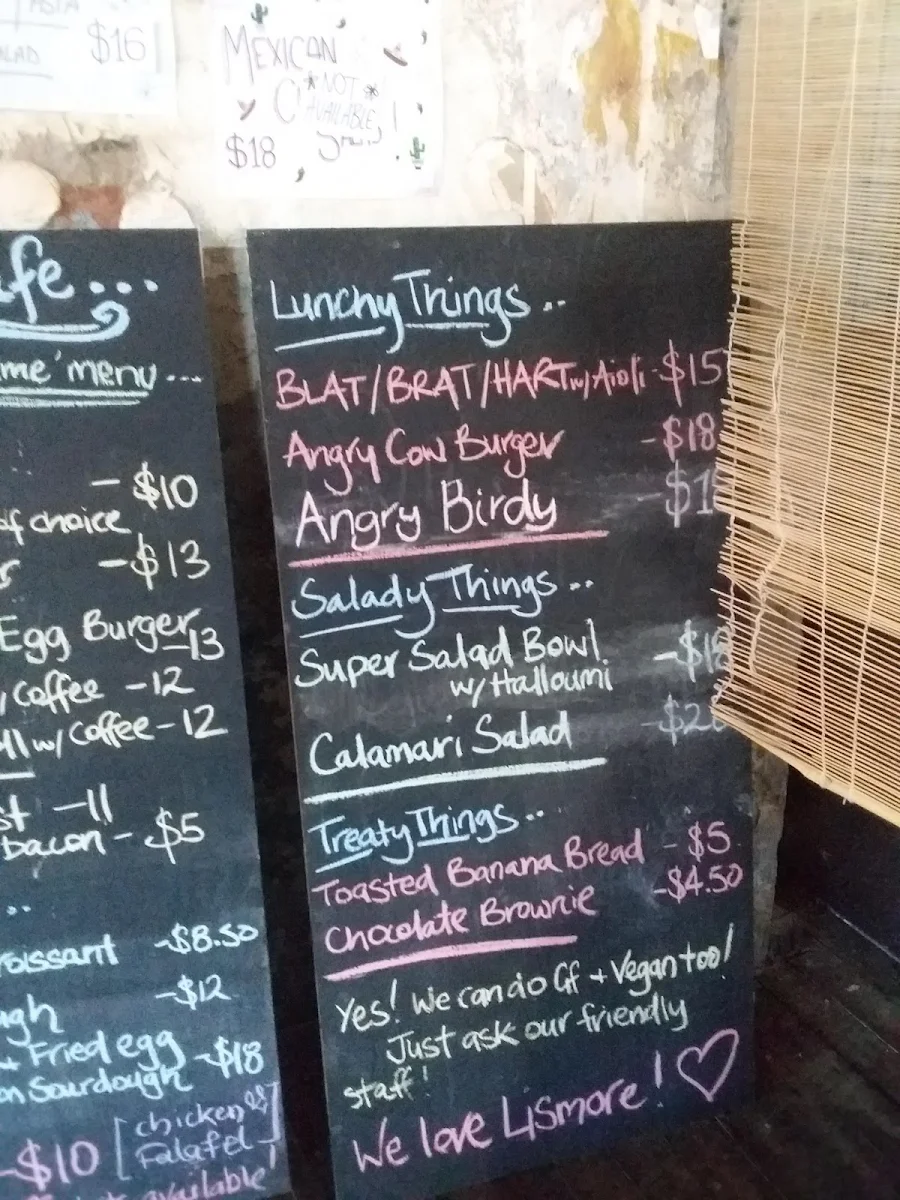 $16
MEXICAN
*NOT*
AVAILABLE
$18
...
me' menu ...
- $10
of choice
- $13
Egg Burger
-13
Coffee -12
w/ Coffee - 12
-11
bacon - $5
..
-$8.50
-$12
Fried egg
on Sourdough -$18
-$10 [chicken or
Falafel]
available!
Lunchy Things ..
BLAT/BRAT/HART w/ Aioli - $15
Angry Cow Burger - $18
Angry Birdy
Salady Things ..
Super Salad Bowl
w/ Halloumi
Calamari Salad
Treaty Things ..
Toasted Banana Bread - $5
Chocolate Brownie -$4.50
Yes! we can do Gf + Vegan too!
Just ask our friendly
staff!
We love Lismore! ♡